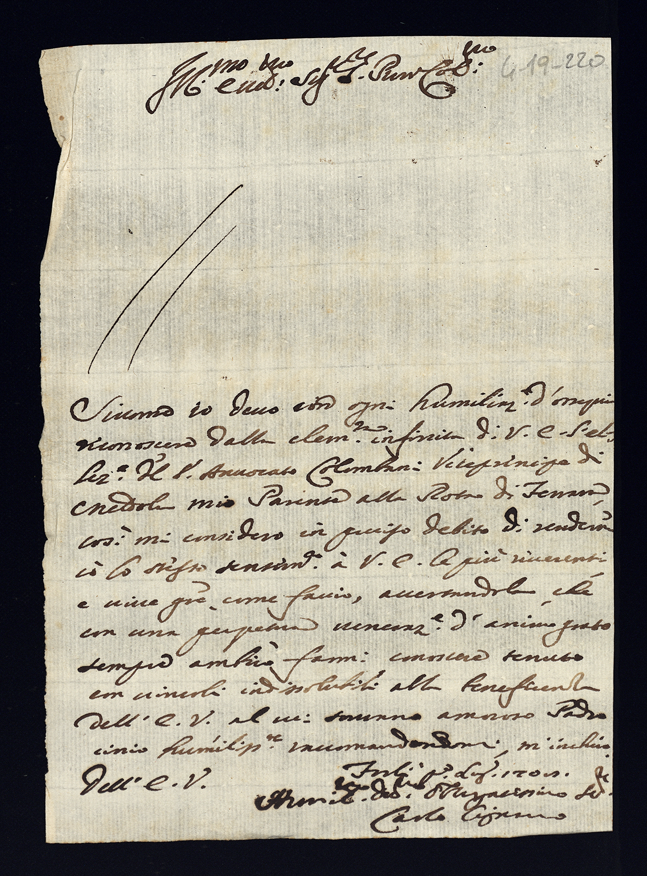 Ill.mo e Rev.mo Sig.r Pron Col.mo
4-19-220
Siccome io devo con ogni humiliaz.e d'ossequio
riconoscere dalla clem.a infinita di V. E. l'el
del S. Avvocato Colombani Viceprincipe di
Meldola mio Parente alla Rota di Ferrara,
così mi considero in preciso debito di render
io lo stesso à V. E. le più riverenti
e vive gr.e come faccio, accertandola, che
con una perpetua d'animo grato
sempre ambirò farmi conoscere tenuto
con vincoli indissolubili alla beneficenza
dell' E. V. al cui sovrano amoroso Patro
cinio humilis.te raccomandandomi, m'inchino
Dell' E. V.
Forlì p.o Lug.
Humil. Dev. Obligatissimo Se.
Carlo Cignano